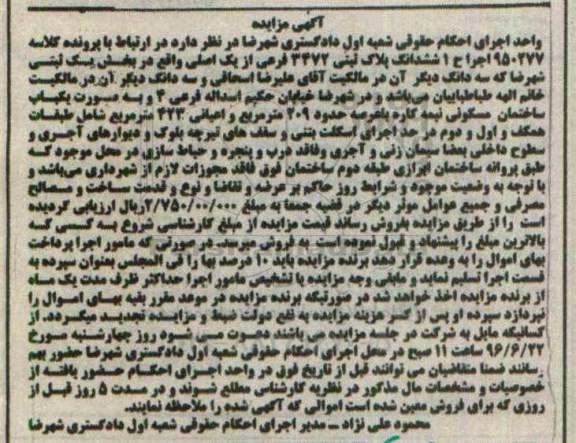 آگهی مزایده
واحد اجرای احکام حقوقی شعبه اول دادگستری شهرضا در نظر دارد در ارتباط با پرونده کلاسه
۹۵۰۲۷۷ اجرا ح ۱ ششدانگ پلاک ثبتی ۳۴۷۲ فرعی از یک اصلی واقع در بخش یک ثبتی
شهرضا که سه دانگ دیگر آن در مالکیت آقای علیرضا اسحاقی و سه دانگ دیگر آن در مالکیت
خانم الهه طباطباییان می‌باشد و در شهرضا خیابان حکیم اسداله فرعی ۴ و به صورت یکباب
ساختمان مسکونی نیمه کاره باعرصه حدود ۲۰۹ مترمربع و اعیانی ۴۲۳ مترمربع شامل طبقات
همکف و اول و دوم در حد اجرای اسکلت بتنی و سقف های تیرچه بلوک و دیوارهای آجری و
سطوح داخلی بعضا سیمان زنی و آجری وفاقد درب و پنجره و حیاط سازی در محل موجود که
طبق پروانه ساختمان ابرازی طبقه دوم ساختمان فوق فاقد مجوزات لازم از شهرداری می‌باشد و
با توجه به وضعیت موجود و شرایط روز حاکم بر عرضه و تقاضا و نوع و قدمت ساخت و مصالح
مصرفی و جمیع عوامل موثر دیگر در قضیه جمعا به مبلغ ۲/۷۵۰/۰۰۰/۰۰۰ریال ارزیابی گردیده
است را از طریق مزایده بفروش رساند قیمت مزایده از مبلغ کارشناسی شروع به کسی که
بالاترین مبلغ را پیشنهاد و قبول نموده است به فروش میرسد. در صورتی که مامور اجرا پرداخت
بهای اموال را به وعده قرار دهد برنده مزایده باید ۱۰ درصد بها را فی المجلس بعنوان سپرده به
قسمت اجرا تسلیم نماید و مابقی وجه مزایده با تشخیص مامور اجرا حداکثر ظرف مدت یک ماه
از برنده مزایده اخذ خواهد شد در صورتیکه برنده مزایده در موعد مقرر بقیه بهای اموال را
نپردازد سپرده او پس از کسر هزینه مزایده به نفع دولت ضبط و مزایده تجدید میگردد. از
کسانیکه مایل به شرکت در جلسه مزایده می باشند دعوت می شود روز چهارشنبه مورخ
۹۶/۶/۲۲ ساعت ۱۱ صبح در محل اجرای احکام حقوقی شعبه اول دادگستری شهرضا حضور بهم
رسانند ضمنا متقاضیان می توانند قبل از تاریخ فوق در واحد اجرای احکام حضور یافته از
خصوصیات و مشخصات مال مذکور در نظریه کارشناسی مطلع شوند و در مدت ۵ روز قبل از
روزی که برای فروش معین شده است اموالی که آگهی شده را ملاحظه نمایند.
محمود علی نژاد ــ مدیر اجرای احکام حقوقی شعبه اول دادگستری شهرضا